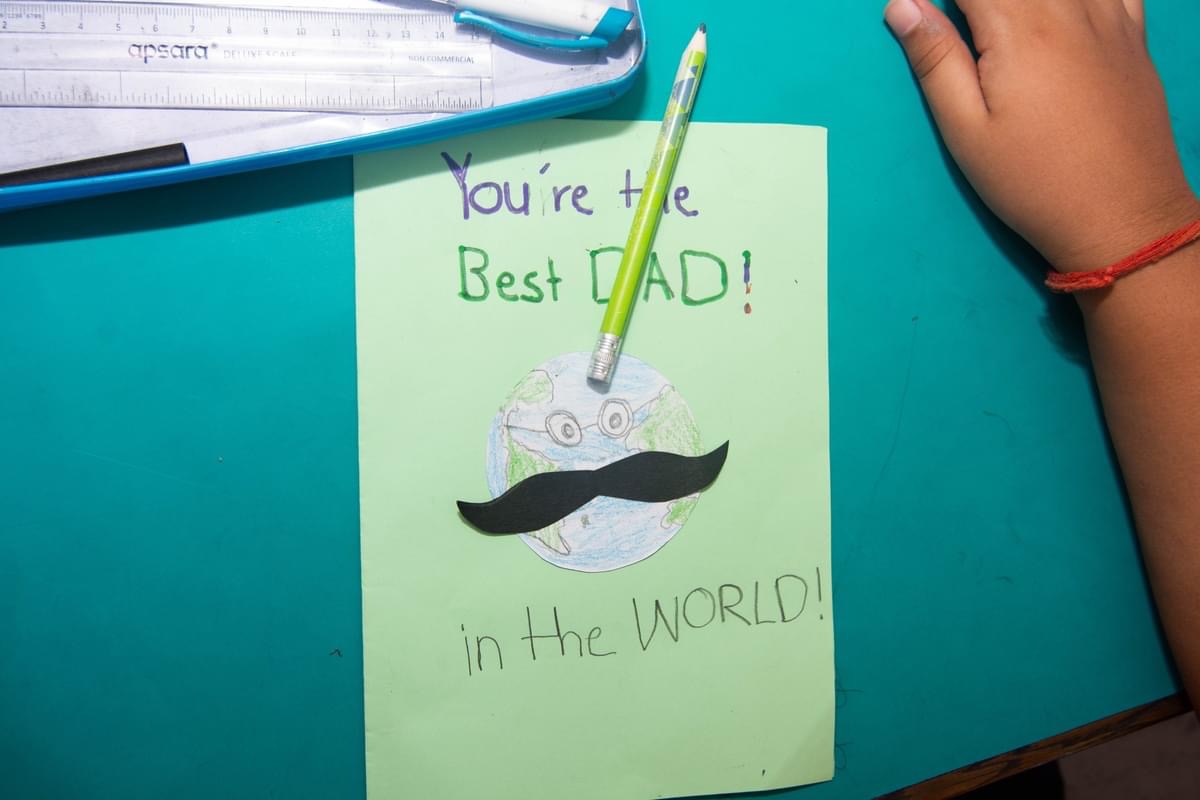 2 3 4 5 6 7 8 9 10 11 12 13 14 15
apsara® DELUXE SCALE NON COMMERCIAL
You're the
Best DAD!
in the WORLD!